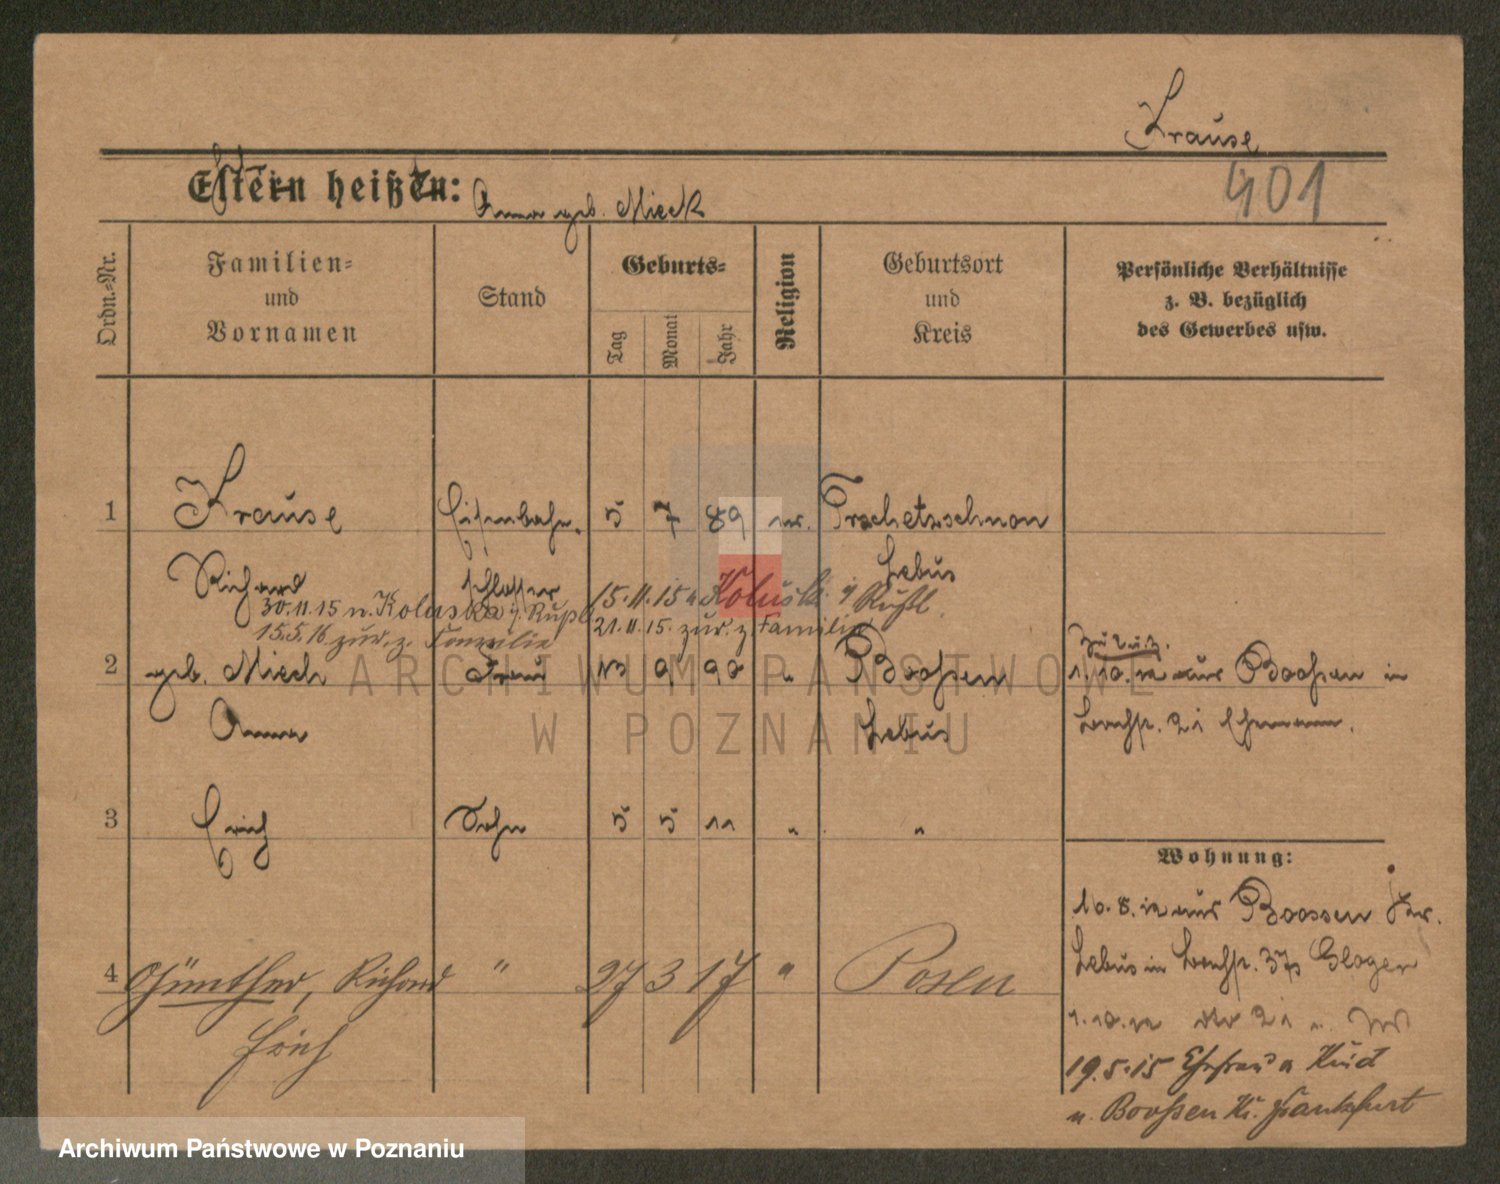 Krause
401
Eltern heißen:
Anna geb. Mieck
Ordn.-Nr.
Familien-
und
Vornamen
Stand
Geburts-
Tag
Monat
Jahr
Religion
Geburtsort
und
Kreis
Persönliche Verhältnisse
z. B. bezüglich
des Gewerbes usw.
1 Krause Eisenbahn- 5 7 89 ev. Tschetzschnow
Richard schlosser Lebus
30.11.15 n. Koluschki i. Rußl. 15.11.15 n Koluschki i Rußl.
15.5.16 zur. z. Familie 21.11.15. zur. z. Familie
2 geb. Mieck Frau 13 9 90 " Boossen 1.10.12 aus Boossen in
Anna Lebus 21 Ehemann.
3 Erich Sohn 5 5 11 " "
Wohnung:
10.8.12 aus Boossen Kr.
Lebus in 37 Gloger
4 Günther, Richard " 27 3 17 " Posen
Erich
1.10.12 21
19.5.15 Ehefrau u Kind
n. Boossen Kr. Frankfurt
ARCHIWUM PAŃSTWOWE
W POZNANIU
Archiwum Państwowe w Poznaniu